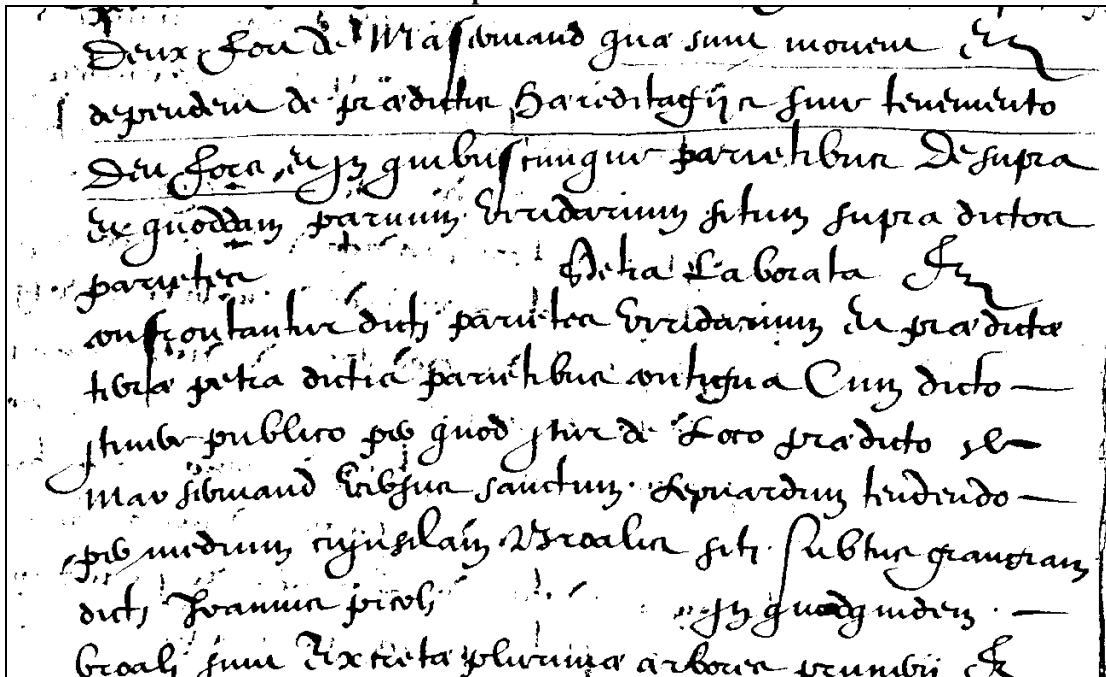 Deux fou de Masermand quæ sunt movent Et
dependent de prædictis Hæreditagijs sive tenemento
Deu fora, et In quibuscunque parietibus Desupra
Et quoddam parvum viridarium situm supra dictos
parietes Petia Laborata Et
confrontantur dicti parietes viridarium Et prædictæ
terræ petia dictis parietibus contigua Cum dicto
Itinere publico per quod Itur de Loco prædicto de
Mas sermand versus sanctum Lepnardum tendendo
per medium cujusdam Broalis siti subtus grangiam
dicti Joannis picoli In quodquidem
broali sunt Excreta plurima arbores prunorum Et